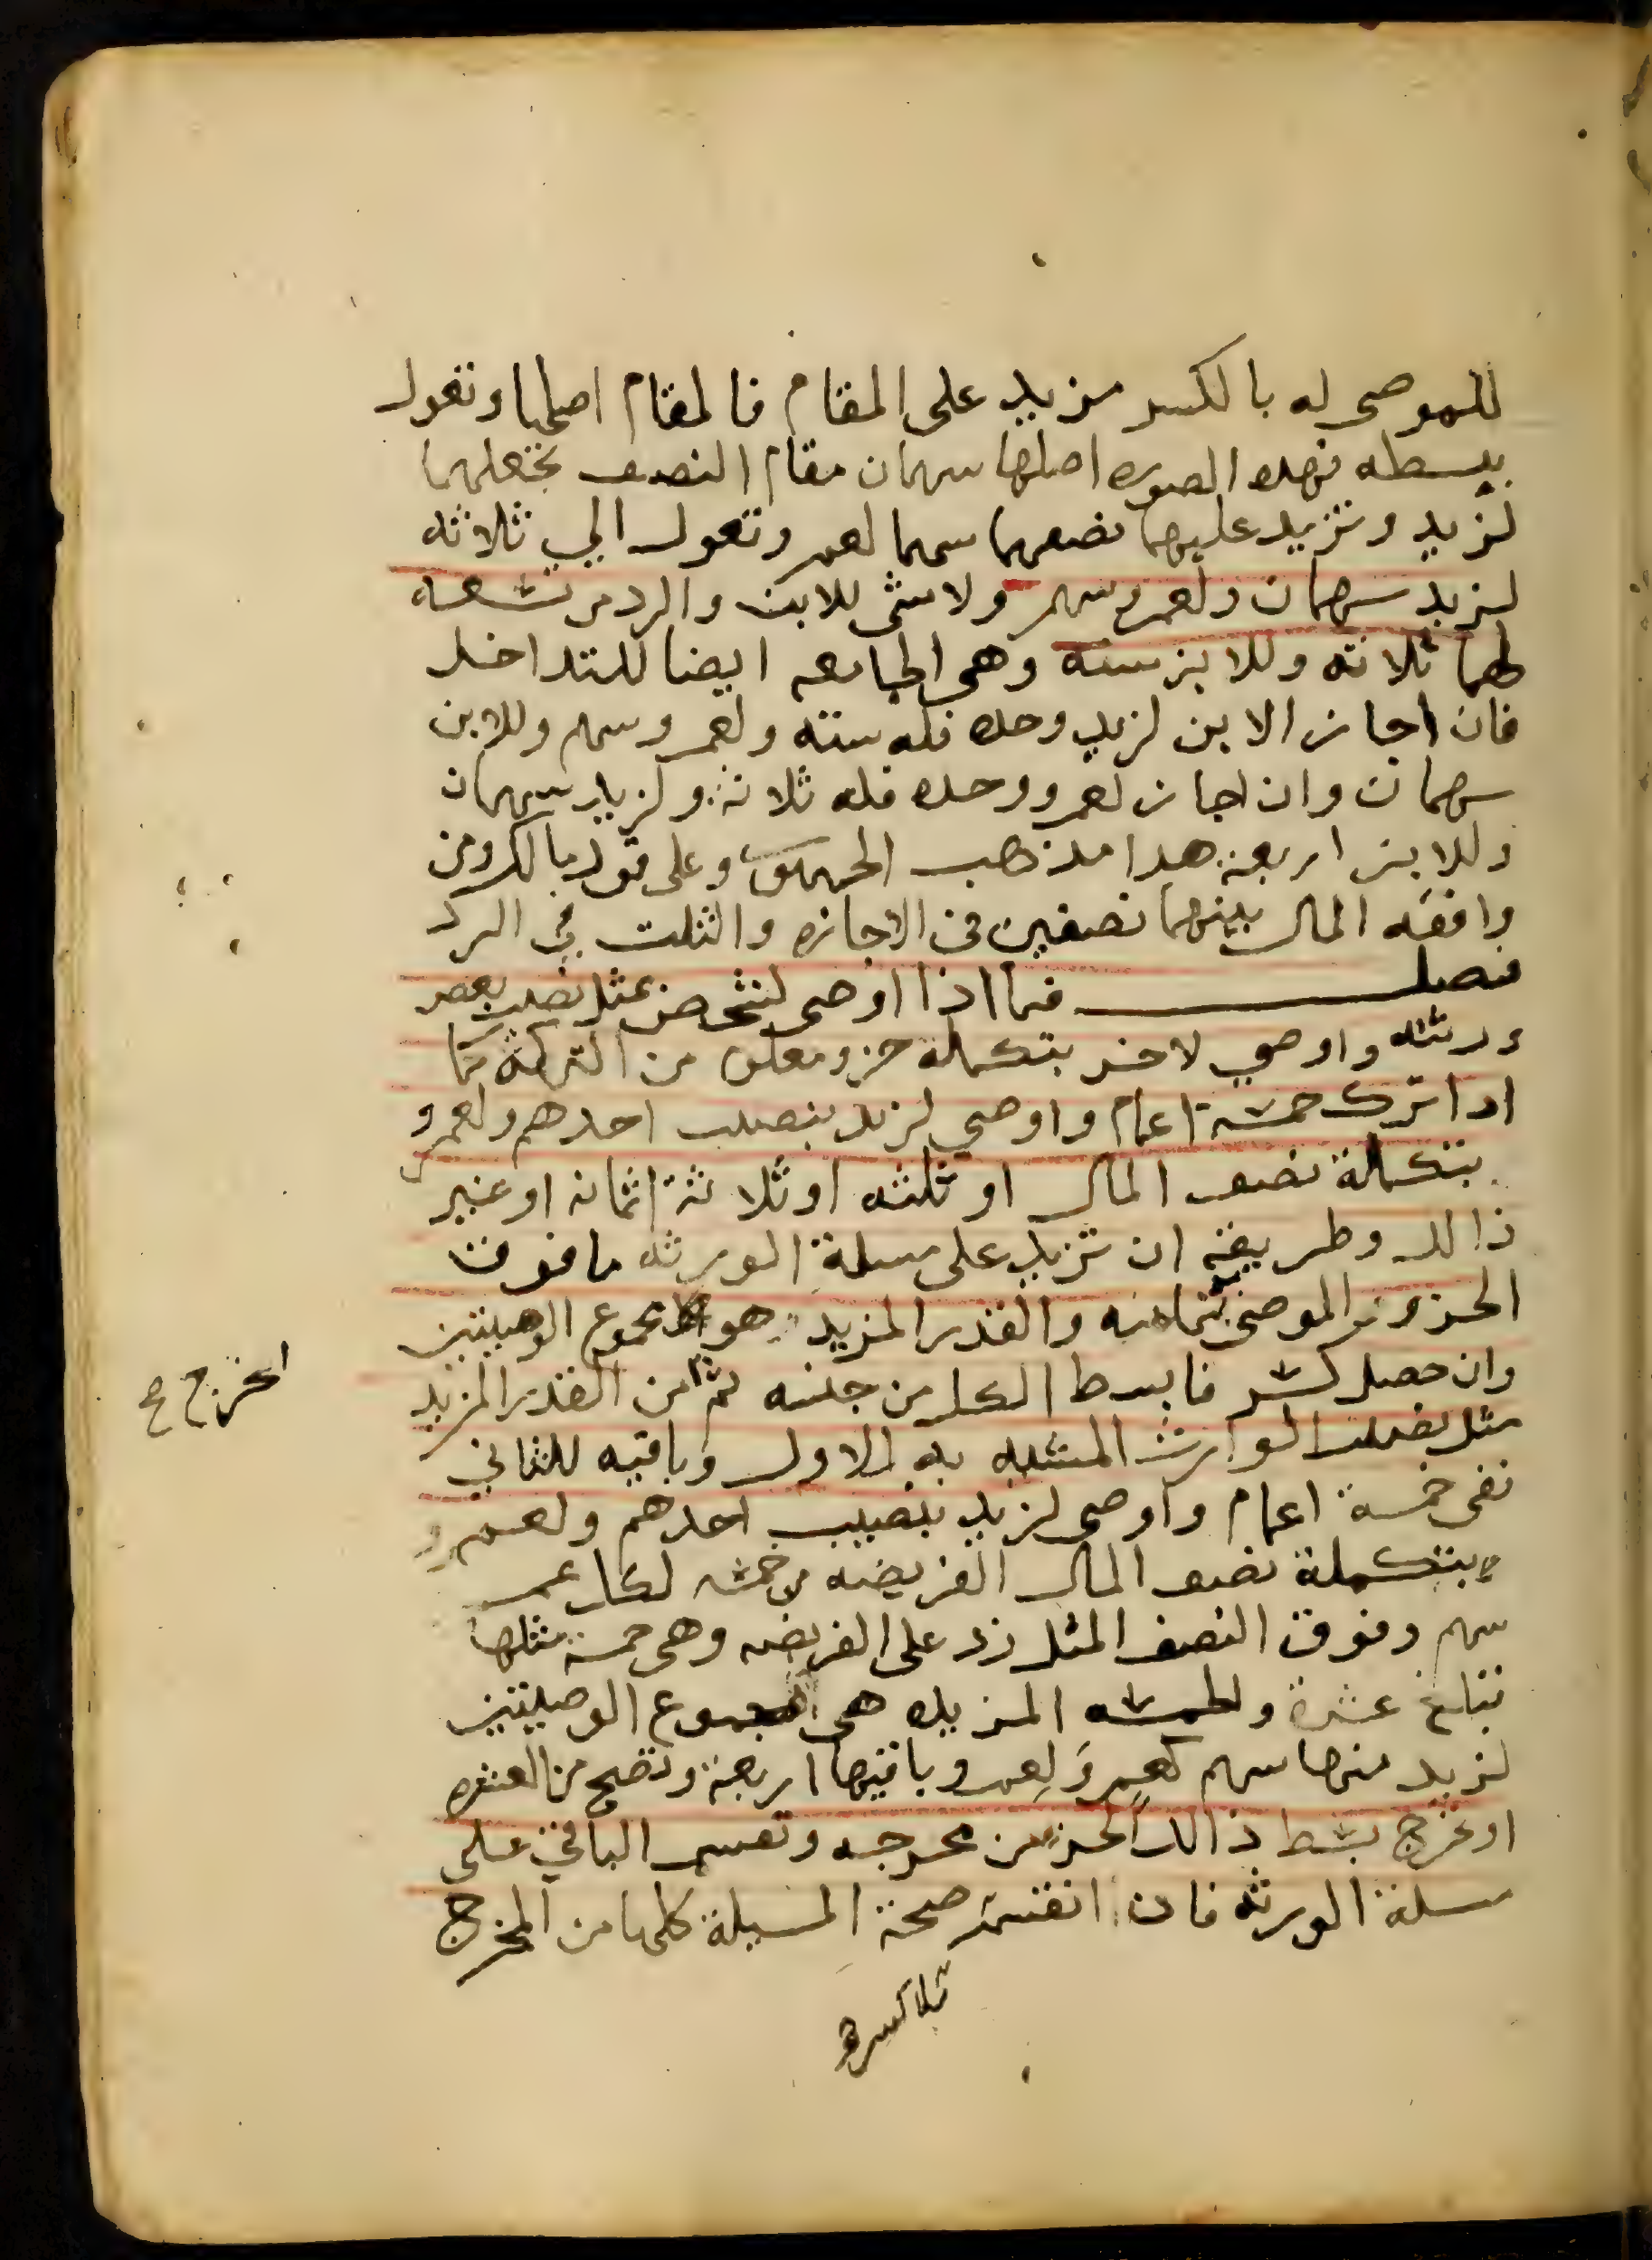 للموصى له بالكسر مزيد على المقام فالمقام اصلها وتعول
ببسطه فهده الصوره اصلها سهمان مقام النصف تجعلهما
لزيد وتزيد عليهما نصفهما سهما لعمر وتعول الي ثلاثه
لزيد سهمان ولعمرو سهم ولا شى للابن والرد من تسعه
لهما ثلاثه وللابن سته وهى الجامعه ايضا للتداخل
فان اجاز الابن لزيد وحده فله سته ولعمرو سهم وللابن
سهمان وان اجاز لعمرو وحده فله ثلاثة ولزيد سهمان
وللابن اربعة هدا مذهب الجمهور وعلى قول مالك ومن
وافقه المال بينهما نصفين فى الاجازه والثلث في الرد
فصل فيما اذا اوصى لشخص بمثل نصيب بعض
ورثته واوصي لاخر بتكملة جزو معلوم من التركة كما
ادا ترك خمسة اعمام واوصي لزيد بنصيب احدهم ولعمرو
بتكملة نصف المال او ثلثه او ثلاثة اثمانه او غير
ذالك وطريقه ان تزيد على مسلة الورثه ما فوق
الجزو الموصى بتمامه والقدر المزيد هو مجموع الوصيتين
وان حصل كسر فابسط الكل من جنسه ثم من القدر المزيد
مثل نصيب الوارث المشبه به للاول وباقيه للثاني
ففى خمسة اعمام واوصى لزيد بنصيب احدهم ولعمرو
بتكملة نصف المال الفريضه من خمسه لكل عم
سهم وفوق النصف المثل زد على الفريضه وهى خمسة مثلها
تبلغ عشرة والخمسه المزيده هى مجموع الوصيتين
لزيد منها سهم كعم ولعمرو باقيها اربعة وتصح من العشره
او تخرج بسط ذالك الجزو من مخرجه وتقسم الباقي على
مسلة الورثه فان انقسم صحة المسيلة كلها من المخرج